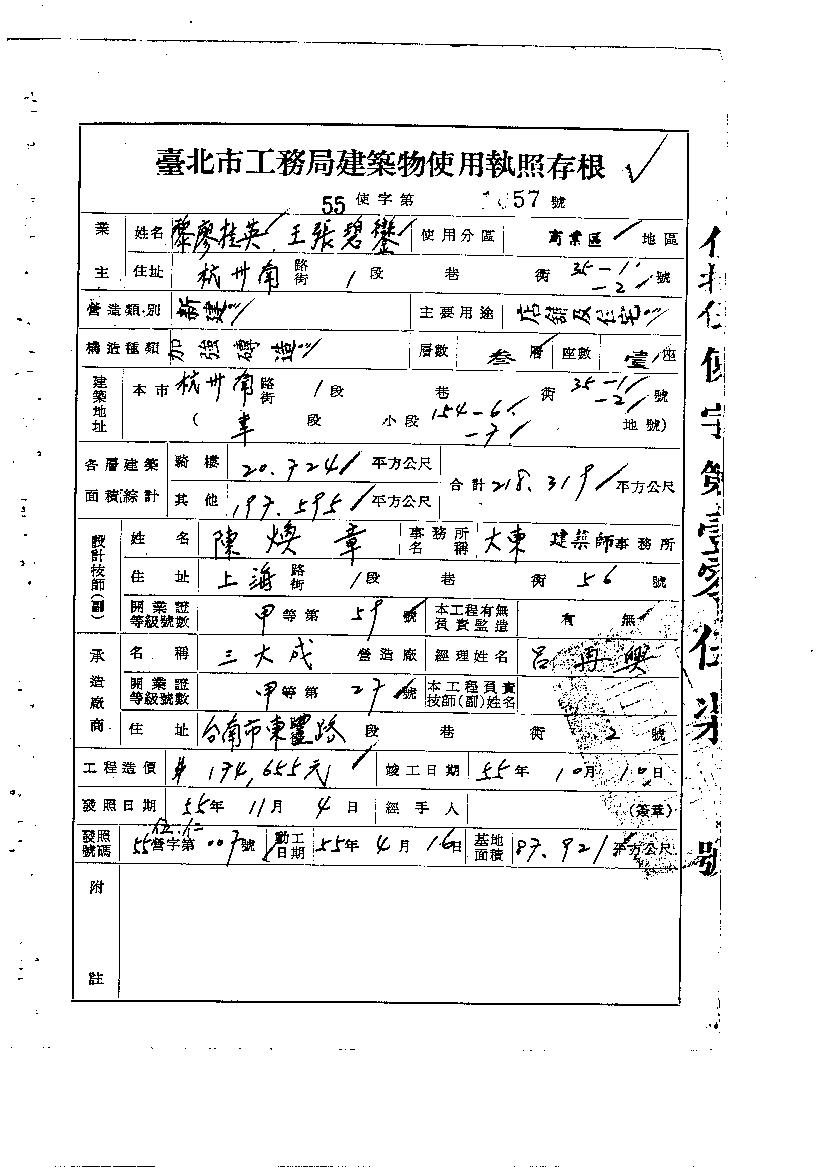 臺北市工務局建築物使用執照存根
55使字第 057號
業主 姓名 黎廖桂英、王張碧鑾 使用分區 商業區 地區
住址 杭州南路街 1段 巷 街 35-1, -2號
營造類別 新建 主要用途 店舖及住宅
構造種類 加強磚造 層數 叁層 座數 壹座
建築地址 本市杭州南路街 1段 巷 街 35-1, -2號
( 段 小段 154-6, -7 地號)
各層建築面積綜計 騎樓 20.724平方公尺 合計218.319平方公尺
其他 197.595平方公尺
設計技師(副) 姓名 陳煥章 事務所名稱 大東建築師事務所
住址 上海路街 1段 巷 街 56號
開業證等級號數 甲等第 59號 本工程有無負責監造 有 無
承造廠商 名稱 三大成 營造廠 經理姓名 呂再興
開業證等級號數 甲等第 27號 本工程負責技師(副)姓名
住址 台南市東豐路 段 巷 街 2號
工程造價 174,655元 竣工日期 55年10月10日
發照日期 55年11月4日 經手人 (簽章)
發照號碼 55營字第007號 動工日期 55年4月16日 基地面積 87.921平方公尺
附註
使字第壹零伍柒號